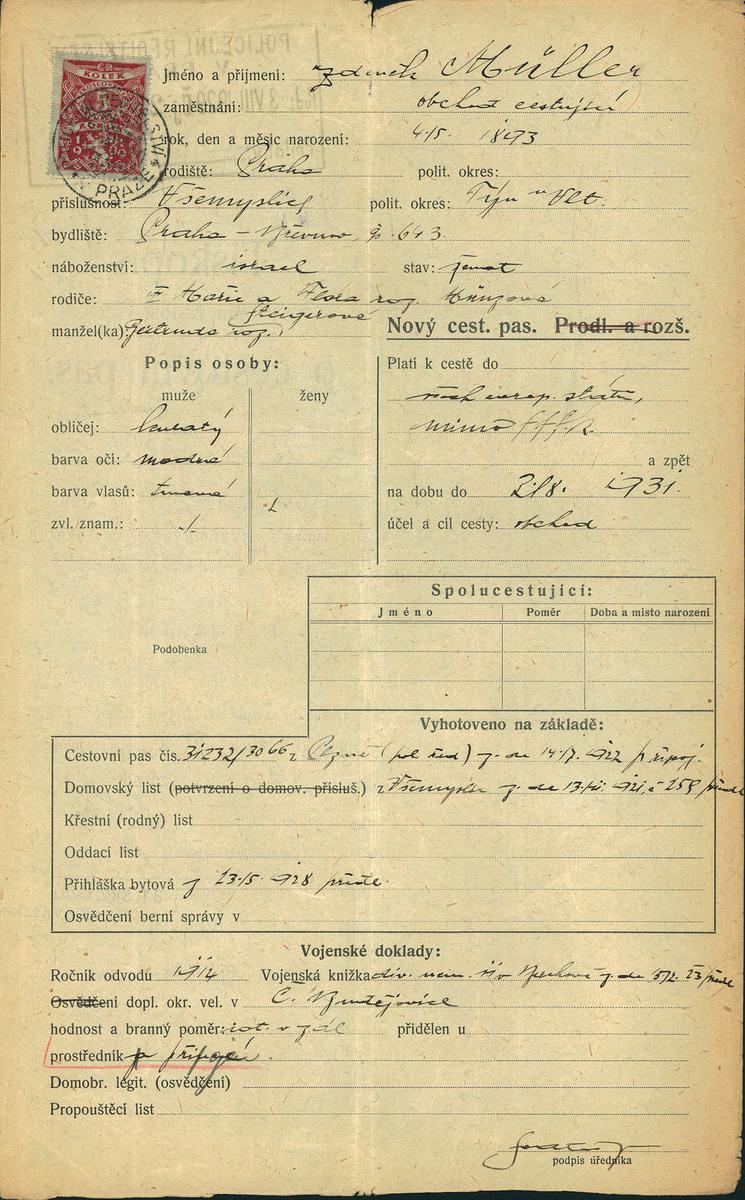 ČR
KOLEK
5
PRAZE
Jméno a příjmení: Zdeněk Müller
zaměstnání: obchod cestující
rok, den a měsíc narození: 4/5. 1893
rodiště: Praha polit. okres:
příslušnost: Všemyslice polit. okres: Týn n Vlt.
bydliště: Praha - čp. 643
náboženství: israel stav: ženat
rodiče: Marie a rog. Münzová
Steigerová
manžel(ka) Gertruda roz.
Nový cest. pas. Prodl. a rozš.
Popis osoby:
muže ženy
Platí k cestě do
všech evrop. států,
obličej: kulatý
mimo
barva očí: modré
a zpět
barva vlasů: tmavé
na dobu do 2/8. 1931.
zvl. znam.: ./.
účel a cíl cesty: obchod
Spolucestující:
Jméno Poměr Doba a místo narození
Podobenka
Vyhotoveno na základě:
Cestovní pas čís. 31232/3066 z Plzně (pol řed) z. de 14./7. 922 připoj.
Domovský list (potvrzení o domov. přísluš.) z Všemyslic z. de 921, č 258
Křestní (rodný) list
Oddací list
Přihláška bytová z 23./5. 928 předl.
Osvědčení berní správy v
Vojenské doklady:
Ročník odvodu 1914 Vojenská knižka z. de 23
Osvědčení dopl. okr. vel. v Č. Budějovice
hodnost a branný poměr: v zál přidělen u
prostředník připojen
Domobr. légit. (osvědčení)
Propouštěcí list
podpis úředníka